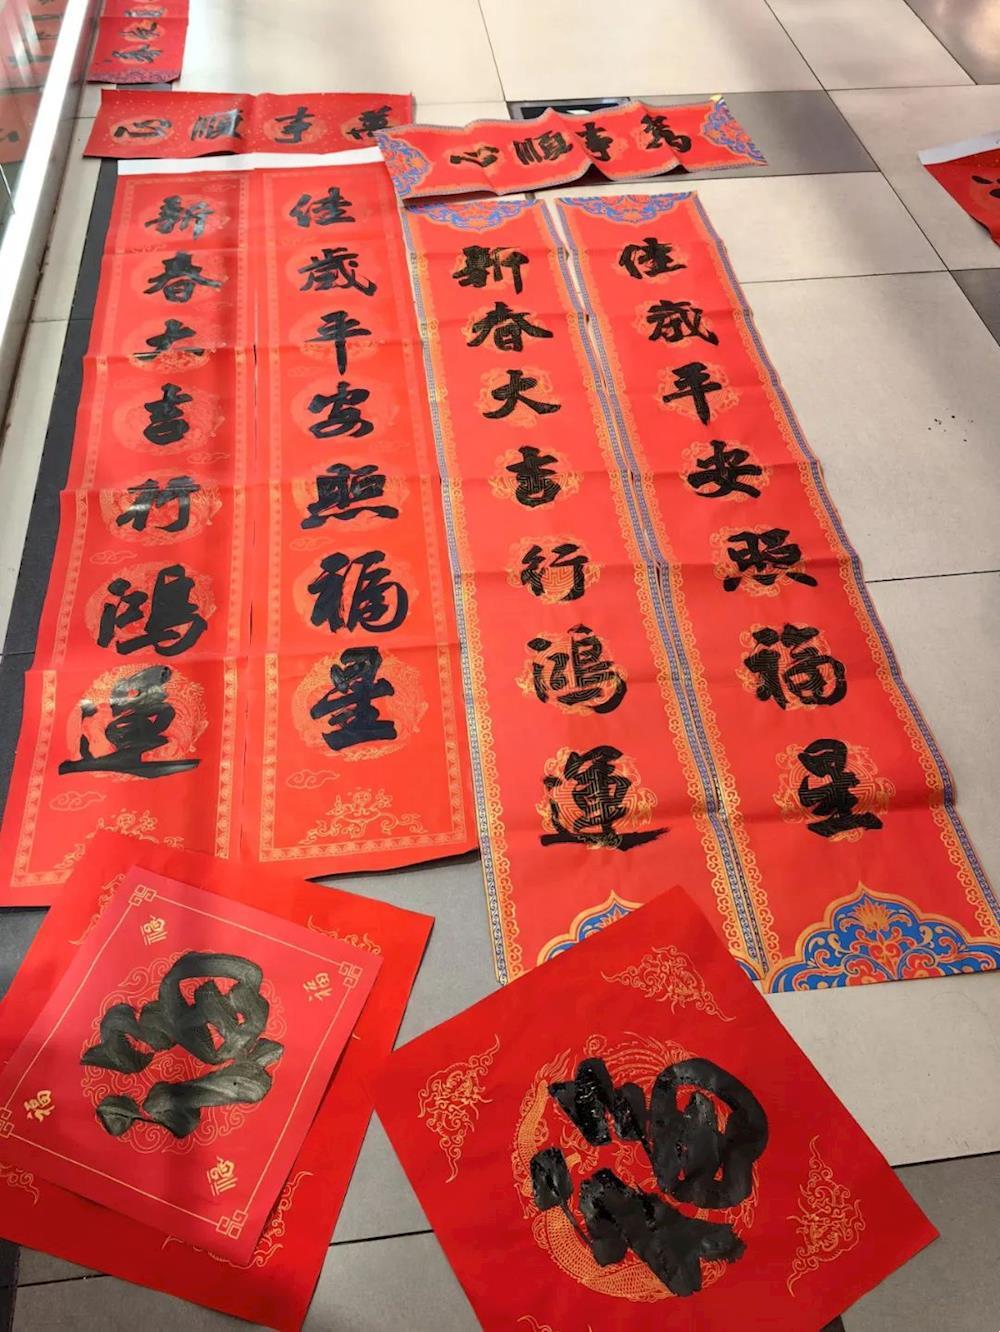 萬事順心
萬事順心
新春大吉行鴻運
佳歲平安照福星
新春大吉行鴻運
佳歲平安照福星
福
福
福
福
福
福